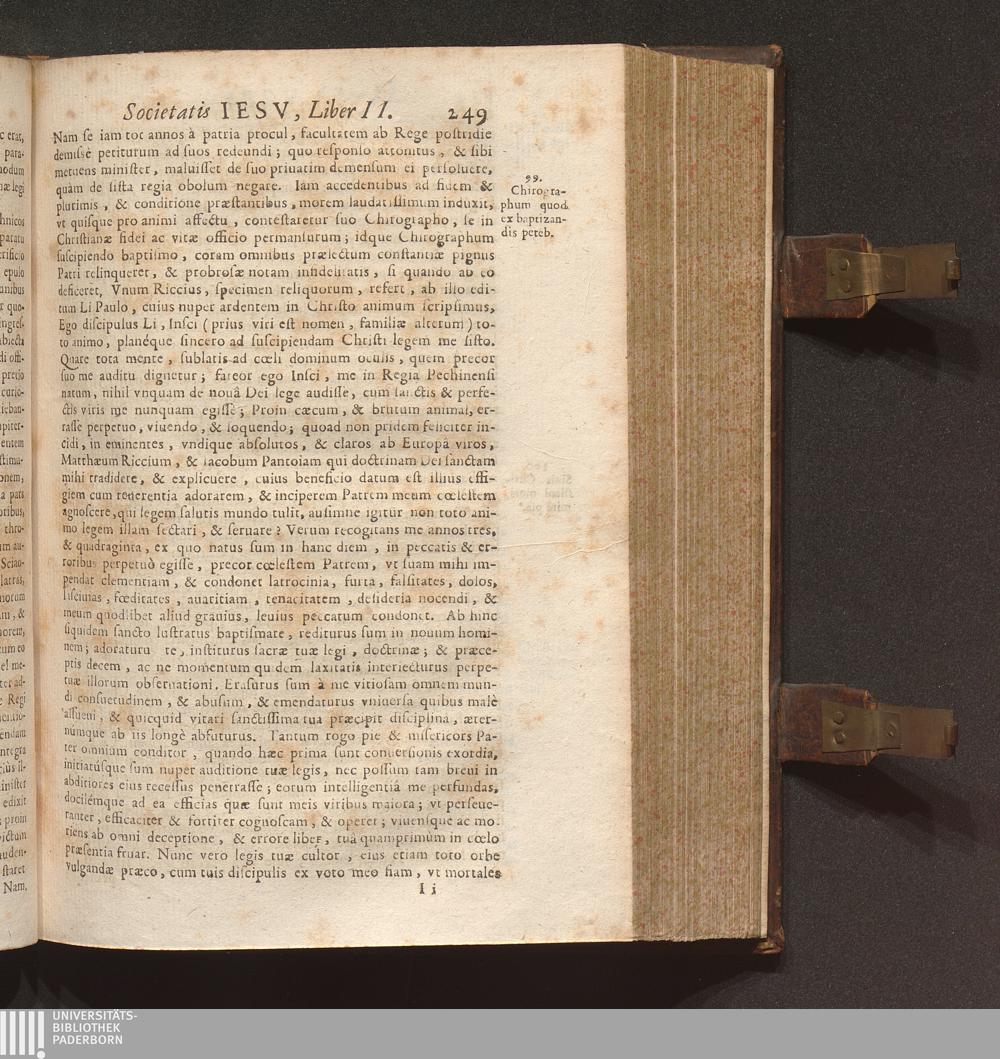 c erat,
para-
nodum
næ legi
hnicos
paratu
crificio
epulo
anibus
r quo-
ingtes,
abiecta
di offi-
pretio
curio-
ieban-
apiter-
entem
stima-
onem,
a pars
oribus,
thro-
im au-
Sciao-
latras,
norum
am, &
norem,
cum eo
el me-
ter ad-
e Regi
endam
ntegra
inister
edixit
; proin
ictum
auden-
staret
Nam.
Societatis IESV, Liber II. 249
Nam se iam tot annos à patria procul, facultatem ab Rege postridie
demissè petiturum ad suos redeundi; quo responso attonitus, & sibi
metuens minister, maluisset de suo priuatim demensum ei persoluere,
quàm de sista regia obolum negare. Iam accedentibus ad fidem &
plurimis, & conditione præstantibus, morem laudatissimum induxit,
vt quisque pro animi affectu, contestaretur suo Chirographo, se in
Christianæ fidei ac vitæ officio permansurum; idque Chirographum
suscipiendo baptismo, coram omnibus prælectum constantiæ pignus
Patri relinqueret, & probrosæ notam infidelitatis, si quando ab eo
deficeret. Vnum Riccius, specimen reliquorum, refert, ab illo edi-
tum Li Paulo, cuius nuper ardentem in Christo animum scripsimus,
Ego discipulus Li, Insci (prius viri est nomen, familiæ alterum) to-
to animo, planéque sincero ad suscipiendam Christi legem me sisto.
Quare tota mente, sublatis ad cœli dominum oculis, quem precor
suo me auditu dignetur; fateor ego Insci, me in Regia Pechinensi
natum, nihil vnquam de nouâ Dei lege audisse, cum sanctis & perfe-
ctis viris me nunquam egisse; Proin cæcum, & brutum animal, er-
rasse perpetuo, viuendo, & loquendo; quoad non pridem feliciter in-
cidi, in eminentes, vndique absolutos, & claros ab Europâ viros,
Matthæum Riccium, & Iacobum Pantoiam qui doctrinam Dei sanctam
mihi tradidere, & explicuere, cuius beneficio datum est illius effi-
giem cum reuerentia adorarem, & inciperem Patrem meum cœlestem
agnoscere, qui legem salutis mundo tulit, ausimne igitur non toto ani-
mo legem illam sectari, & seruare? Verum recogitans me annos tres,
& quadraginta, ex quo natus sum in hanc diem, in peccatis & er-
roribus perpetuò egisse, precor cœlestem Patrem, vt suam mihi im-
pendat clementiam, & condonet latrocinia, furta, falsitates, dolos,
lasciuias, fœditates, auaritiam, tenacitatem, desideria nocendi, &
meum quodlibet aliud grauius, leuius peccatum condonet. Ab hinc
siquidem sancto lustratus baptismate, rediturus sum in nouum homi-
nem; adoraturu te, institurus sacræ tuæ legi, doctrinæ; & præce-
ptis decem, ac ne momentum qu dem laxitatis interiecturus perpe-
tuæ illorum obseruationi. Erasurus sum à me vitiosam omnem mun-
di consuetudinem, & abusum, & emendaturus vniuersa quibus malè
assueui, & quicquid vitari sanctissima tua præcipit disciplina, æter-
nùmque ab iis longè abfuturus. Tantum rogo pie & misericors Pa-
ter omnium conditor, quando hæc prima sunt conuersionis exordia,
initiatúsque sum nuper auditione tuæ legis, nec possum tam breui in
abditiores eius recessus penetrasse; eorum intelligentiâ me perfundas,
docilémque ad ea efficias quæ sunt meis viribus maiora; vt perseue-
ranter, efficaciter & fortiter cognoscam, & operer; viuensque ac mo-
riens ab omni deceptione, & errore liber, tuâ quamprimùm in cœlo
præsentia fruar. Nunc vero legis tuæ cultor, eius etiam toto orbe
vulgandæ præco, cum tuis discipulis ex voto meo fiam, vt mortales
I i
99.
Chirogra-
phum quod
ex baptizan-
dis peteb.
UNIVERSITÄTS-
BIBLIOTHEK
PADERBORN